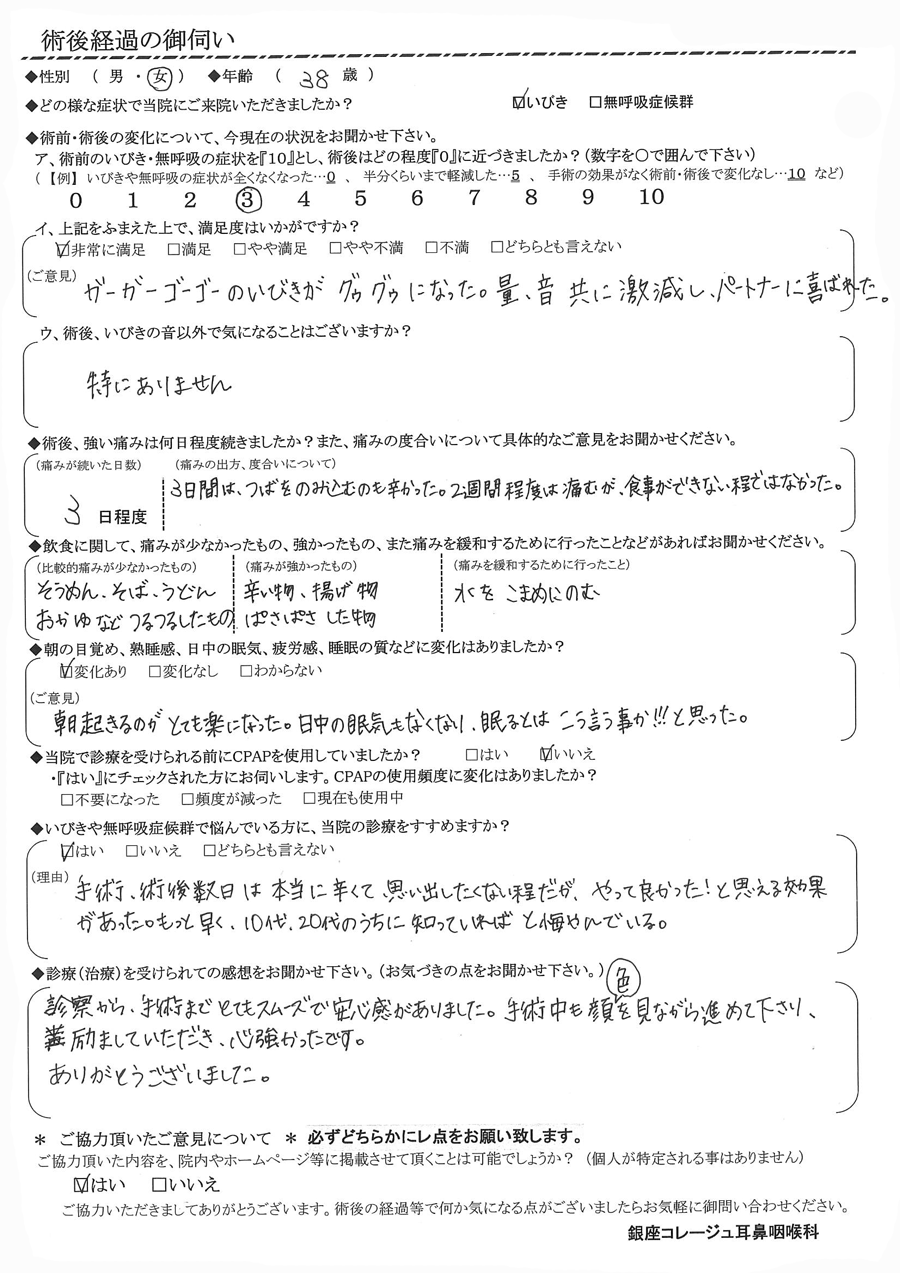 術後経過の御伺い
◆性別 ( 男 ・ 女 ) ◆年齢 ( 38 歳 )
◆どの様な症状で当院にご来院いただきましたか? ☑いびき □無呼吸症候群
◆術前・術後の変化について、今現在の状況をお聞かせ下さい。
ア、術前のいびき・無呼吸の症状を『10』とし、術後はどの程度『0』に近づきましたか?(数字を○で囲んで下さい)
(【例】 いびきや無呼吸の症状が全くなくなった…0 、 半分くらいまで軽減した…5 、 手術の効果がなく術前・術後で変化なし…10 など)
0 1 2 ③ 4 5 6 7 8 9 10
イ、上記をふまえた上で、満足度はいかがですか?
☑非常に満足 □満足 □やや満足 □やや不満 □不満 □どちらとも言えない
(ご意見) ガーガーゴーゴーのいびきが グゥグゥになった。量、音 共に激減し、パートナーに喜ばれた。
ウ、術後、いびきの音以外で気になることはございますか?
特にありません
◆術後、強い痛みは何日程度続きましたか?また、痛みの度合いについて具体的なご意見をお聞かせください。
(痛みが続いた日数) (痛みの出方、度合いについて)
3 日程度 3日間は、つばをのみ込むのも辛かった。2週間程度は痛むが、食事ができない程ではなかった。
◆飲食に関して、痛みが少なかったもの、強かったもの、また痛みを緩和するために行ったことなどがあればお聞かせください。
(比較的痛みが少なかったもの) (痛みが強かったもの) (痛みを緩和するために行ったこと)
そうめん、そば、うどん 辛い物、揚げ物 水を こまめにのむ
おかゆなど つるつるしたもの ぱさぱさ した物
◆朝の目覚め、熟睡感、日中の眠気、疲労感、睡眠の質などに変化はありましたか?
☑変化あり □変化なし □わからない
(ご意見)
朝起きるのが とても楽になった。日中の眠気もなくなり、眠るとは こう言う事か!!!と思った。
◆当院で診療を受けられる前にCPAPを使用していましたか? □はい ☑いいえ
・『はい』にチェックされた方にお伺いします。CPAPの使用頻度に変化はありましたか?
□不要になった □頻度が減った □現在も使用中
◆いびきや無呼吸症候群で悩んでいる方に、当院の診療をすすめますか?
☑はい □いいえ □どちらとも言えない
(理由) 手術、術後数日は 本当に辛くて、思い出したくない程だが、やって良かった!と思える効果
があった。もっと早く、10代、20代のうちに知っていればと悔やんでいる。
◆診療(治療)を受けられての感想をお聞かせ下さい。(お気づきの点をお聞かせ下さい。)
診察から、手術までとてもスムーズで安心感がありました。手術中も顔色を見ながら進めて下さり、
励ましていただき、心強かったです。
ありがとうございました。
* ご協力頂いたご意見について * 必ずどちらかにレ点をお願い致します。
ご協力頂いた内容を、院内やホームページ等に掲載させて頂くことは可能でしょうか? (個人が特定される事はありません)
☑はい □いいえ
ご協力いただきましてありがとうございます。術後の経過等で何か気になる点がございましたらお気軽に御問い合わせください。
銀座コレージュ耳鼻咽喉科